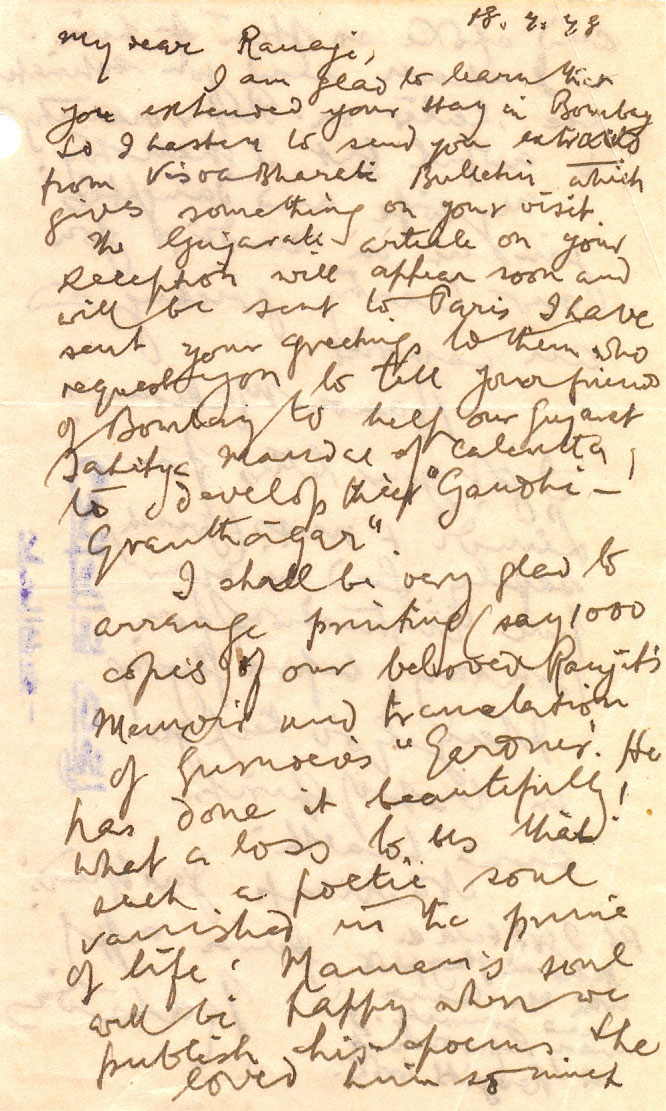 18. 7. 78
My dear Ranaji,
I am glad to learn that
you extended your stay in Bombay
So I hasten to send you extracts
from Visva Bharati Bulletin which
gives something on your visit.
The Gujarati article on your
Reception will appear soon and
will be sent to Paris I have
sent your greetings to them who
request you to tell your friends
of Bombay to help our Gujarat
Sahitya Mandal of Calcutta,
to develop their "Gandhi –
Granthāgar".
I shall be very glad to
arrange printing (say 1000
copies) of our beloved Ranjit's
Memoir and translation
of Gurudev's "Gardner". He
has done it beautifully!
What a loss to us that
such a poetic soul
vanished in the prime
of life! soul
will be happy when we
publish his poems She
loved him so much